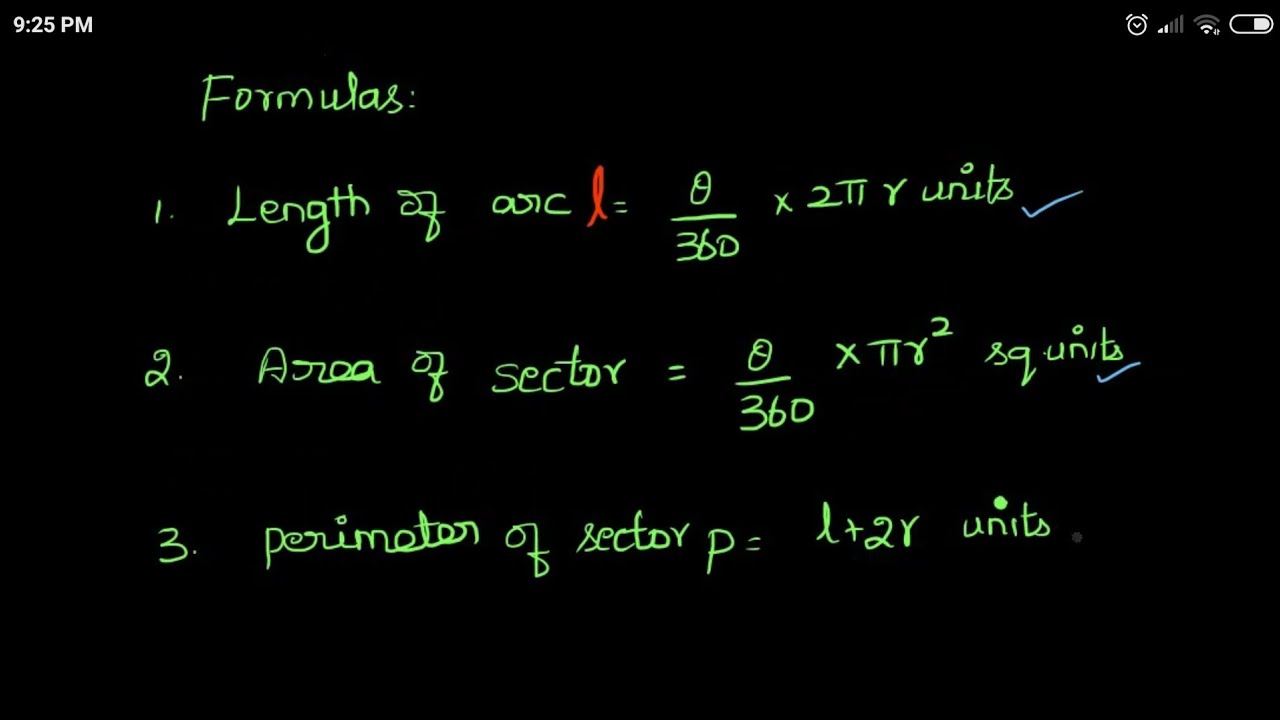 9:25 PM
Formulas:
1. Length of arc l = θ/360 × 2πr units
2. Area of sector = θ/360 × πr² sq.units
3. perimeter of sector p = l+2r units